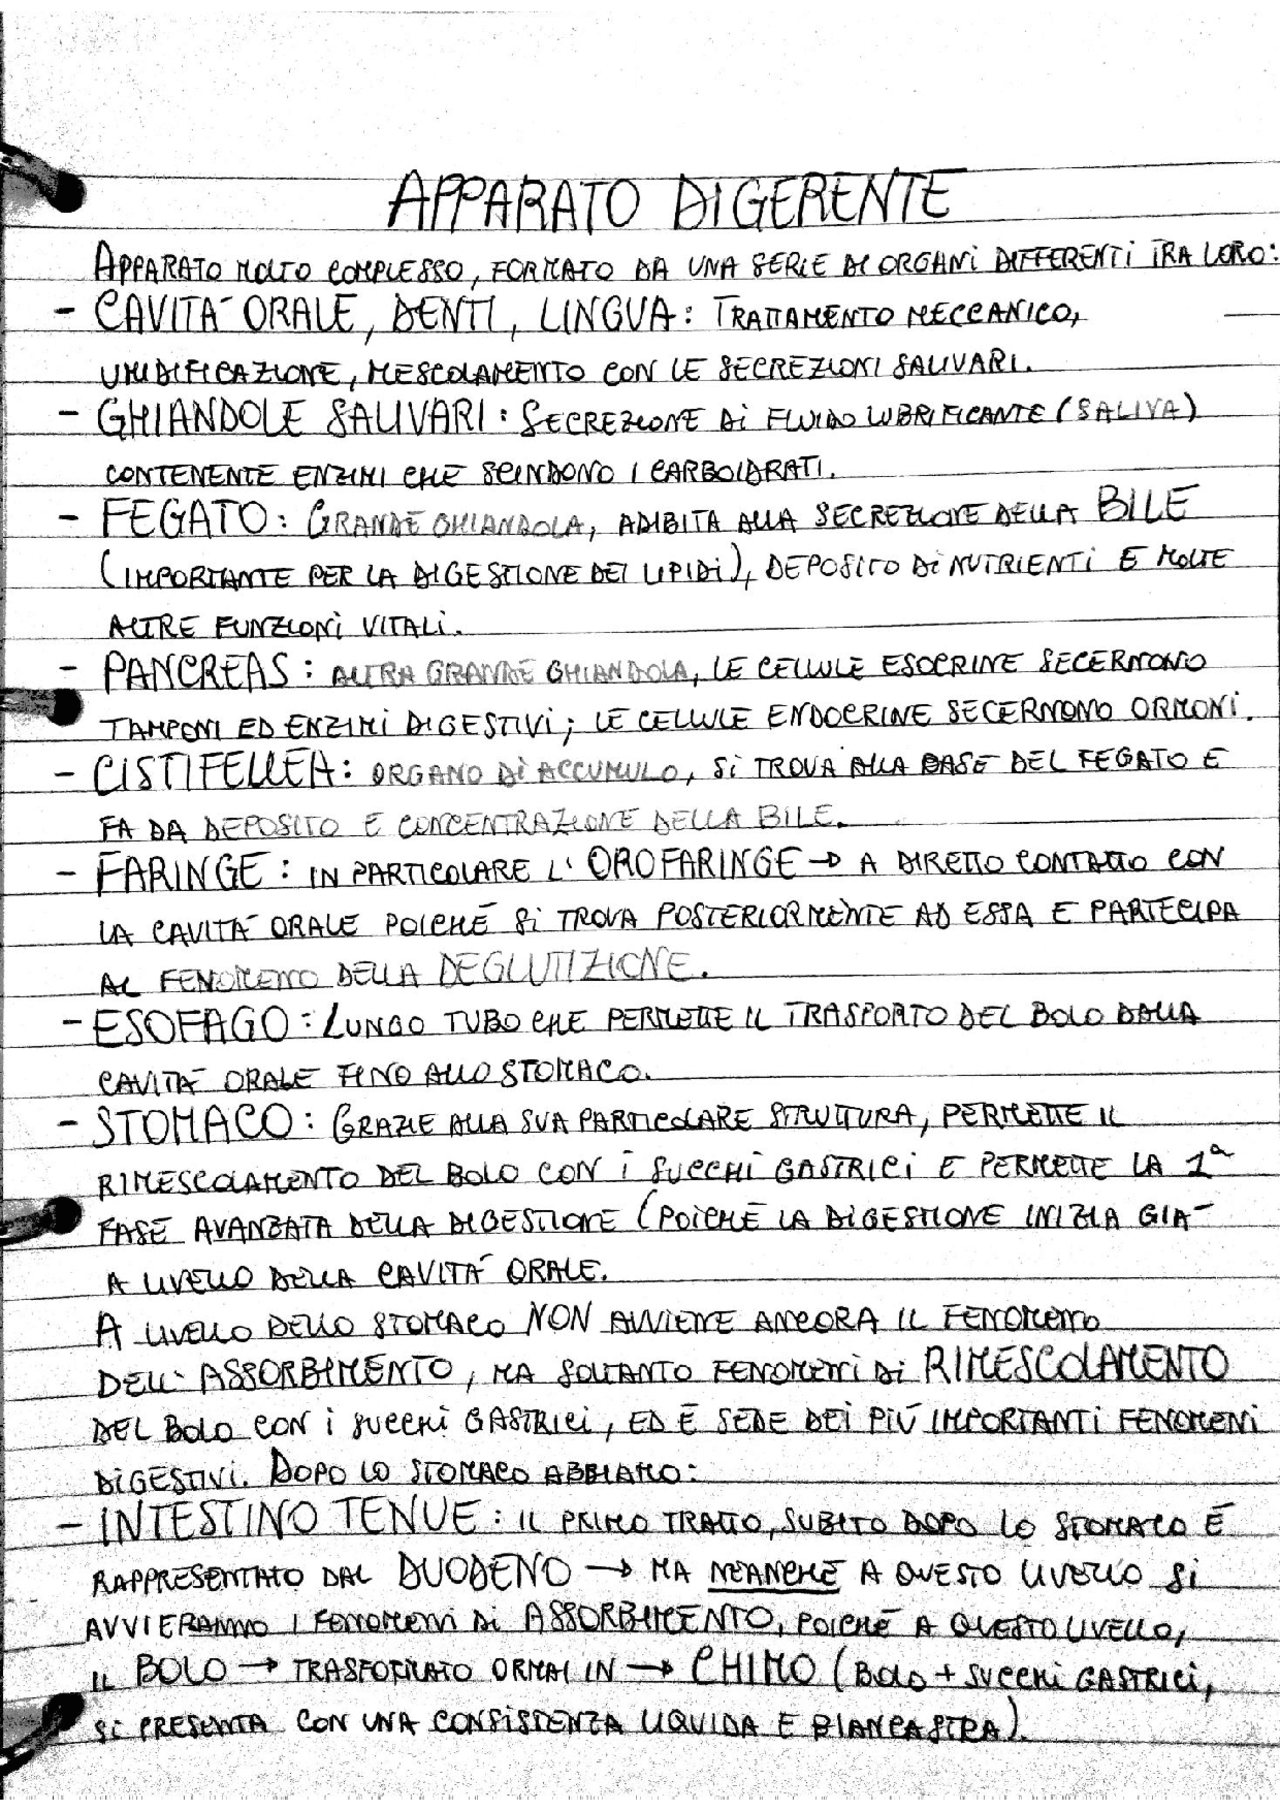 APPARATO DIGERENTE
APPARATO MOLTO COMPLESSO, FORMATO DA UNA SERIE DI ORGANI DIFFERENTI TRA LORO:
- CAVITÀ ORALE, DENTI, LINGUA: TRATTAMENTO MECCANICO,
UMIDIFICAZIONE, MESCOLAMENTO CON LE SECREZIONI SALIVARI.
- GHIANDOLE SALIVARI: SECREZIONE DI FLUIDO LUBRIFICANTE (SALIVA)
CONTENENTE ENZIMI CHE SCINDONO I CARBOIDRATI.
- FEGATO: GRANDE GHIANDOLA, ADIBITA ALLA SECREZIONE DELLA BILE
(IMPORTANTE PER LA DIGESTIONE DEI LIPIDI), DEPOSITO DI NUTRIENTI E MOLTE
ALTRE FUNZIONI VITALI.
- PANCREAS: ALTRA GRANDE GHIANDOLA, LE CELLULE ESOCRINE SECERNONO
TAMPONI ED ENZIMI DIGESTIVI; LE CELLULE ENDOCRINE SECERNONO ORMONI.
- CISTIFELLEA: ORGANO DI ACCUMULO, SI TROVA ALLA BASE DEL FEGATO E
FA DA DEPOSITO E CONCENTRAZIONE DELLA BILE.
- FARINGE: IN PARTICOLARE L'OROFARINGE → A DIRETTO CONTATTO CON
LA CAVITÀ ORALE POICHÉ SI TROVA POSTERIORMENTE AD ESSA E PARTECIPA
AL FENOMENO DELLA DEGLUTIZIONE.
- ESOFAGO: LUNGO TUBO CHE PERMETTE IL TRASPORTO DEL BOLO DALLA
CAVITÀ ORALE FINO ALLO STOMACO.
- STOMACO: GRAZIE ALLA SUA PARTICOLARE STRUTTURA, PERMETTE IL
RIMESCOLAMENTO DEL BOLO CON I SUCCHI GASTRICI E PERMETTE LA 1ª
FASE AVANZATA DELLA DIGESTIONE (POICHÉ LA DIGESTIONE INIZIA GIÀ
A LIVELLO DELLA CAVITÀ ORALE.
A LIVELLO DELLO STOMACO NON AVVIENE ANCORA IL FENOMENO
DELL'ASSORBIMENTO, MA SOLTANTO FENOMENI DI RIMESCOLAMENTO
DEL BOLO CON I SUCCHI GASTRICI, ED È SEDE DEI PIÙ IMPORTANTI FENOMENI
DIGESTIVI. DOPO LO STOMACO ABBIAMO:
- INTESTINO TENUE: IL PRIMO TRATTO, SUBITO DOPO LO STOMACO È
RAPPRESENTATO DAL DUODENO → MA NEANCHE A QUESTO LIVELLO SI
AVVIERANNO I FENOMENI DI ASSORBIMENTO, POICHÉ A QUESTO LIVELLO,
IL BOLO → TRASFORMATO ORMAI IN → CHIMO (BOLO + SUCCHI GASTRICI,
SI PRESENTA CON UNA CONSISTENZA LIQUIDA E BIANCASTRA).